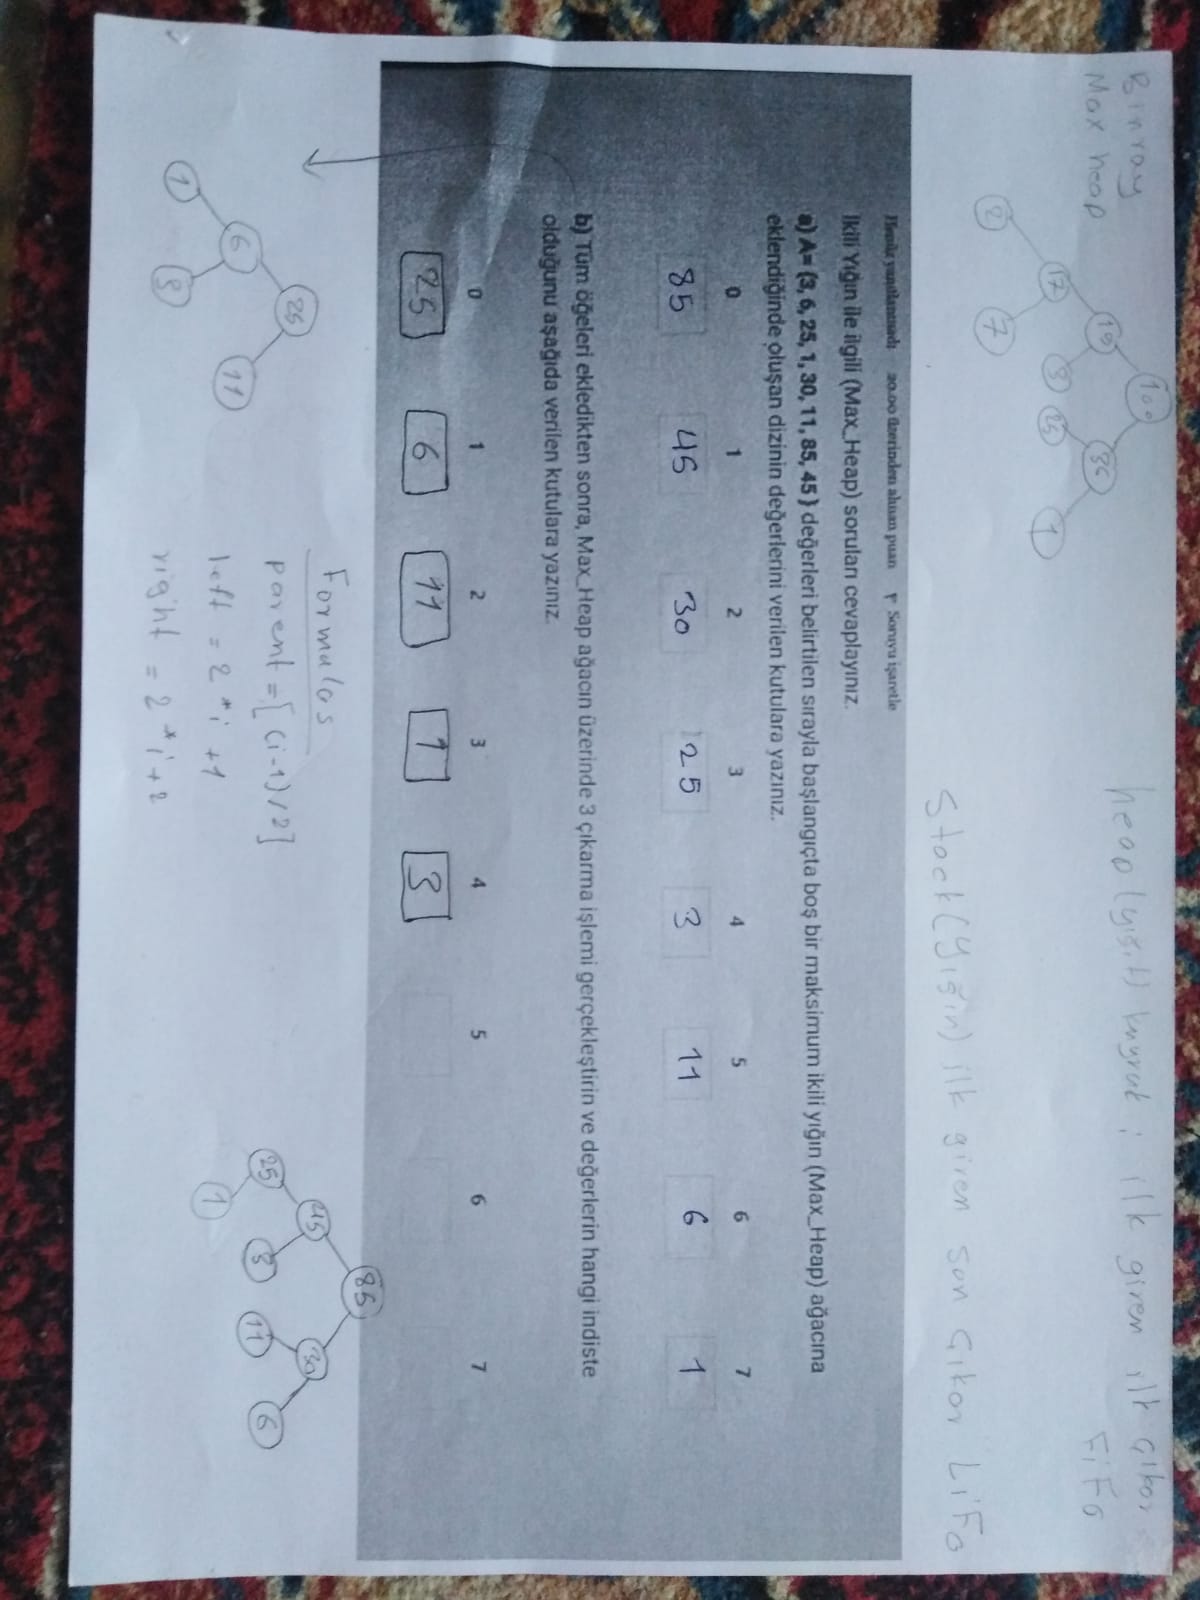 Binray
Max heap
100
19
36
17
3
25
1
2
7
heap (yığıt) kuyruk : ilk giren ilk çıkar
FiFo
Stack (Yığın) ilk giren son çıkar LiFo
Henüz yanıtlanmadı 20.00 üzerinden alınan puan Soruyu işaretle
İkili Yığın ile ilgili (Max_Heap) sorulan cevaplayınız.
a) A= {3, 6, 25, 1, 30, 11, 85, 45 } değerleri belirtilen sırayla başlangıçta boş bir maksimum ikili yığın (Max_Heap) ağacına
eklendiğinde oluşan dizinin değerlerini verilen kutulara yazınız.
0 1 2 3 4 5 6 7
85 45 30 25 3 11 6 1
b) Tüm öğeleri ekledikten sonra, Max_Heap ağacın üzerinde 3 çıkarma işlemi gerçekleştirin ve değerlerin hangi indiste
olduğunu aşağıda verilen kutulara yazınız.
0 1 2 3 4 5 6 7
25 6 11 1 3
25
6
11
1
3
Formulas
parent = [(i-1)/2]
left = 2*i +1
right = 2*i+2
85
45
30
25
3
11
6
1